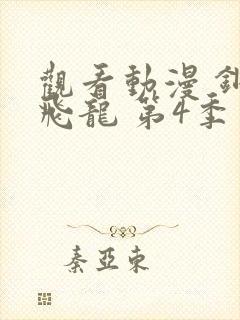 觀看動漫
飛龍 第4季
秦亞東